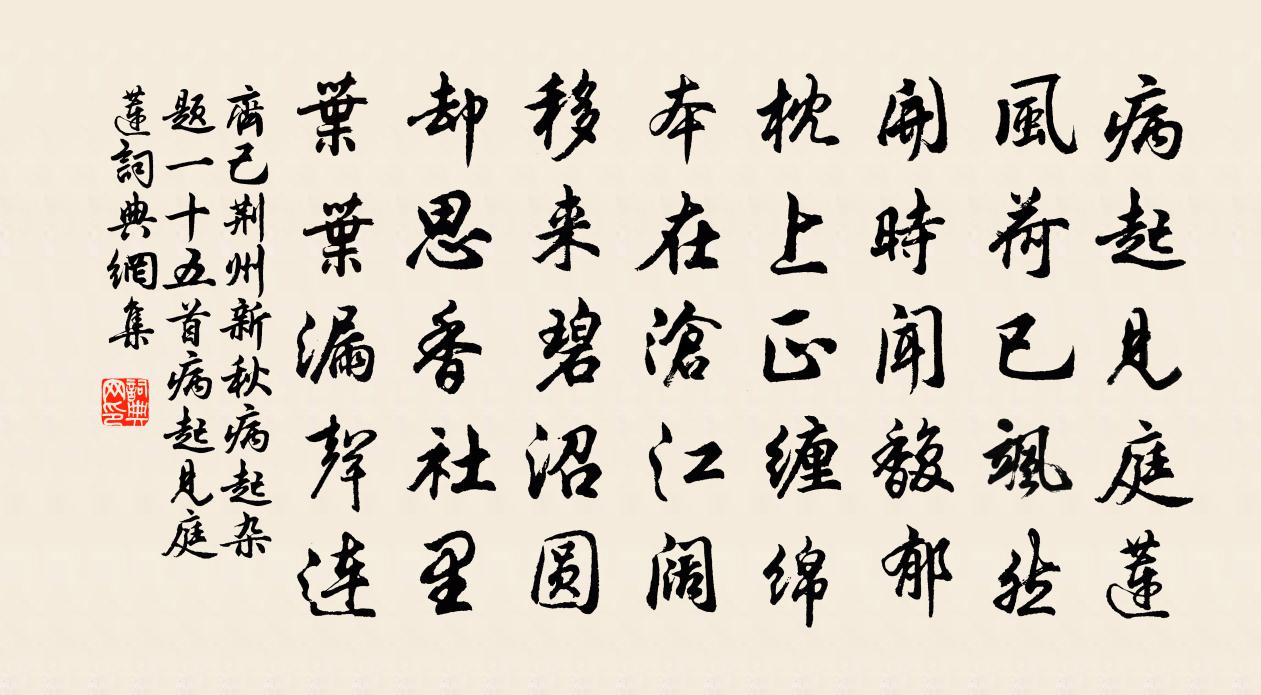 病起見庭蓮
風荷已颯然
開時聞馥郁
枕上正缠绵
本在滄江阔
移来碧沼圆
却思香社里
葉葉漏聲連
齊己荆州新秋病起杂
题一十五首病起見庭
蓮詞典網集
詞典
网印